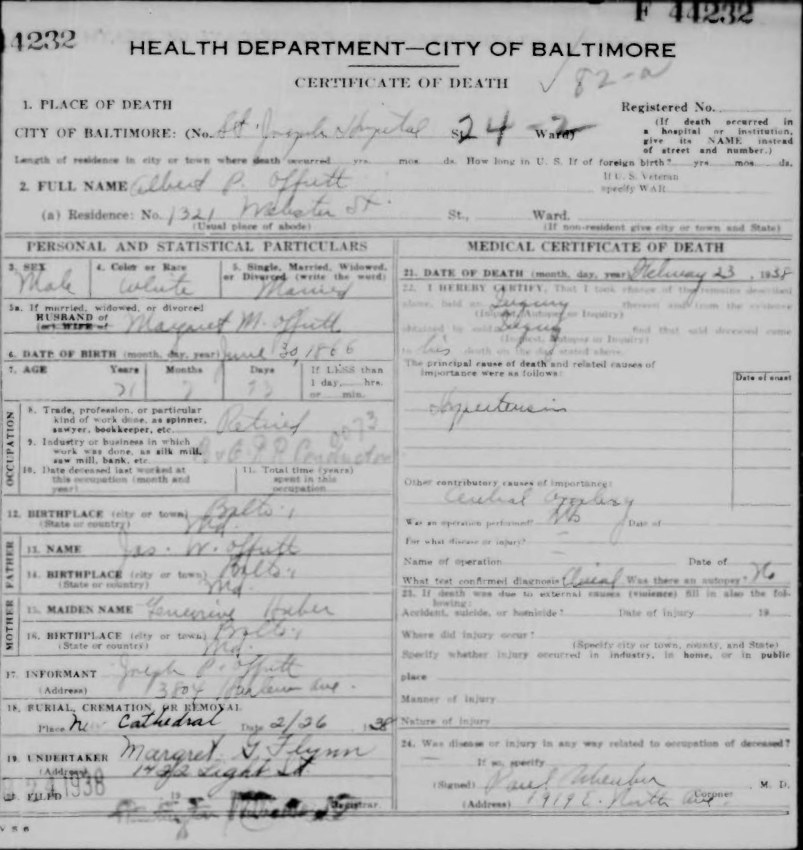 F 44232
44232
HEALTH DEPARTMENT—CITY OF BALTIMORE
CERTIFICATE OF DEATH
82-a
1. PLACE OF DEATH
Registered No.
CITY OF BALTIMORE: (No. St. Joseph Hospital St. 24-2 Ward)
(If death occurred in a hospital or institution, give its NAME instead of street and number.)
Length of residence in city or town where death occurred yrs. mos. ds. How long in U. S. if of foreign birth? yrs. mos. ds.
2. FULL NAME Albert P. Offutt
If U. S. Veteran specify WAR
(a) Residence: No. 1321 Webster St. St., Ward.
(Usual place of abode) (If non-resident give city or town and State)
PERSONAL AND STATISTICAL PARTICULARS
3. SEX Male
4. Color or Race White
5. Single, Married, Widowed, or Divorced (write the word) Married
5a. If married, widowed, or divorced
HUSBAND of
(or) WIFE of Margaret M. Offutt
6. DATE OF BIRTH (month, day, year) June 30, 1866
7. AGE Years 71 Months 7 Days 23 If LESS than 1 day, hrs. or min.
OCCUPATION
8. Trade, profession, or particular kind of work done, as spinner, sawyer, bookkeeper, etc. Retired
9. Industry or business in which work was done, as silk mill, saw mill, bank, etc. B & O R R Conductor
10. Date deceased last worked at this occupation (month and year)
11. Total time (years) spent in this occupation
12. BIRTHPLACE (city or town) Balto.,
(State or country) Md.
FATHER
13. NAME Jas. W. Offutt
14. BIRTHPLACE (city or town) Balto.,
(State or country) Md.
MOTHER
15. MAIDEN NAME Genevieve Huber
16. BIRTHPLACE (city or town) Balto.,
(State or country) Md.
17. INFORMANT Joseph P. Offutt
(Address) 3804 Ave.
18. BURIAL, CREMATION, OR REMOVAL
Place New Cathedral Date 2/26 1938
19. UNDERTAKER Margret G Flynn
(Address) 1422 Light St
20. FILED 24 1938
Registrar.
V S 6
MEDICAL CERTIFICATE OF DEATH
21. DATE OF DEATH (month, day, year) February 23, 1938
22. I HEREBY CERTIFY, That I took charge of the remains described
above, held an Inquiry thereon and from the evidence
(Inquest, Autopsy or Inquiry)
obtained by said Inquiry find that said deceased came
(Inquest, Autopsy or Inquiry)
to his death on the day stated above.
The principal cause of death and related causes of importance were as follows:
Date of onset
Hypertension
Other contributory causes of importance:
Cerebral Apoplexy
Was an operation performed? No Date of
For what disease or injury?
Name of operation Date of
What test confirmed diagnosis Clinical Was there an autopsy? No
23. If death was due to external causes (violence) fill in also the following:
Accident, suicide, or homicide? Date of injury 19
Where did injury occur?
(Specify city or town, county, and State)
Specify whether injury occurred in industry, in home, or in public
place
Manner of injury
Nature of injury
24. Was disease or injury in any way related to occupation of deceased?
If so, specify
(Signed) Paul M. D.
Coroner
(Address) 1919 E. North Ave.